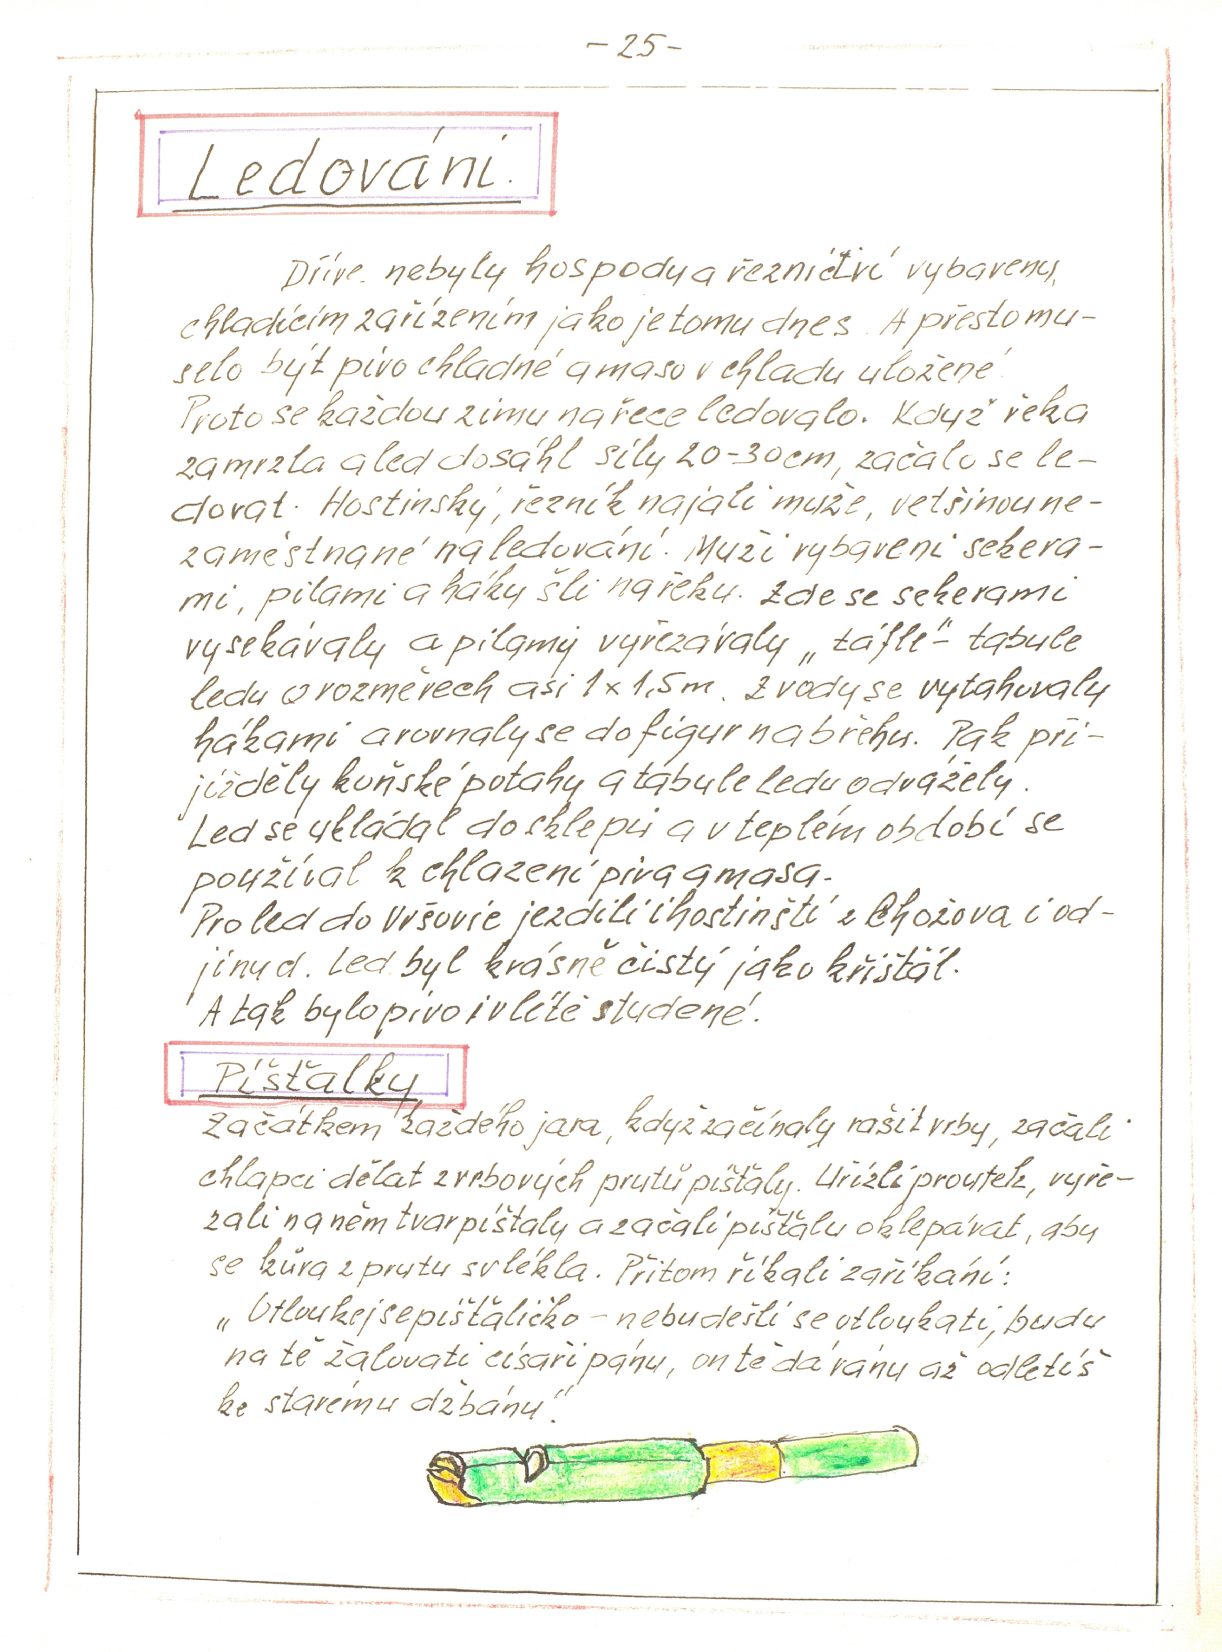 - 25 -
Ledování.
Dříve nebyly hospody a řeznictví vybaveny
chladícím zařízením jako je tomu dnes. A přesto mu-
selo být pivo chladné a maso v chladu uložené.
Proto se každou zimu na řece ledovalo. Když řeka
zamrzla a led dosáhl síly 20-30 cm, začalo se le-
dovat. Hostinský, řezník najali muže, vetšinou ne-
zaměstnané na ledování. Muži vybaveni sekera-
mi, pilami a háky šli na řeku. Zde se sekerami
vysekávaly a pilamy vyřezávaly „táfle" - tabule
ledu o rozměrech asi 1 x 1,5 m. Z vody se vytahovaly
hákami a rovnaly se do figur na břehu. Pak při-
jížděly koňské potahy a tabule ledu odvážely.
Led se ukládal do sklepů a v teplém období se
používal k chlazení piva a masa.
Pro led do Vršovic jezdili i hostinští z Chožova i od-
jinud. Led byl krásně čistý jako křišťál.
A tak bylo pivo i v létě studené.
Píšťalky
Začátkem každého jara, když začínaly rašit vrby, začali
chlapci dělat z vrbových prutů píšťaly. Uřízli proutek, vyře-
zali na něm tvar píšťaly a začali píšťalu oklepávat, aby
se kůra z prutu svlékla. Přitom říkali zaříkání:
„Otloukej se píšťaličko - nebudešli se otloukati, budu
na tě žalovati císaři pánu, on tě dá ránu až odletíš
ke starému džbánu".